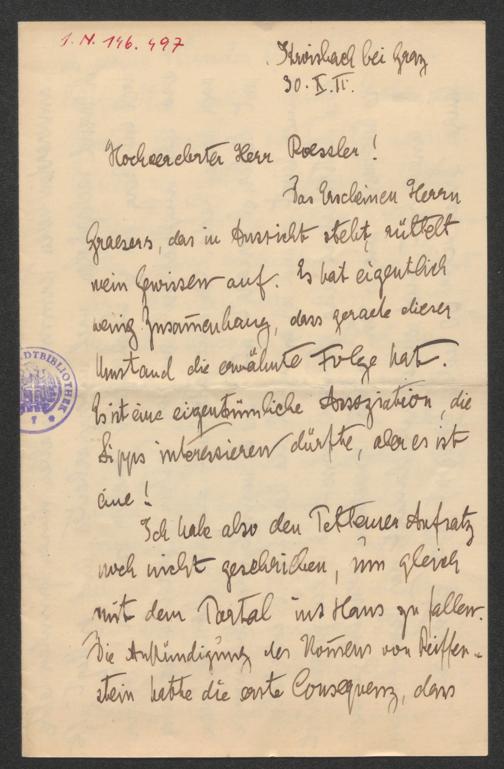 I. N. 146.497
Kroisbach bei Graz
30. X. 11.
Hochverehrter Herr Roessler!
Das Erscheinen Herrn
Graesers, das in Aussicht steht, rüttelt
mein Gewissen auf. Es hat eigentlich
wenig Zusam̄enhang, dass gerade dieser
Umstand die erwähnte Folge hat.
Es ist eine eigentümliche Assoziation, die
Lipps interessieren dürfte, aber es ist
eine!
Ich habe also den Aufsatz
noch nicht geschrieben, um gleich
mit dem Portal ins Haus zu fallen.
Die Ankündigung des Nam̄ens von Reiffen-
stein hatte die erste Consequenz, dass
STADTBIBLIOTHEK